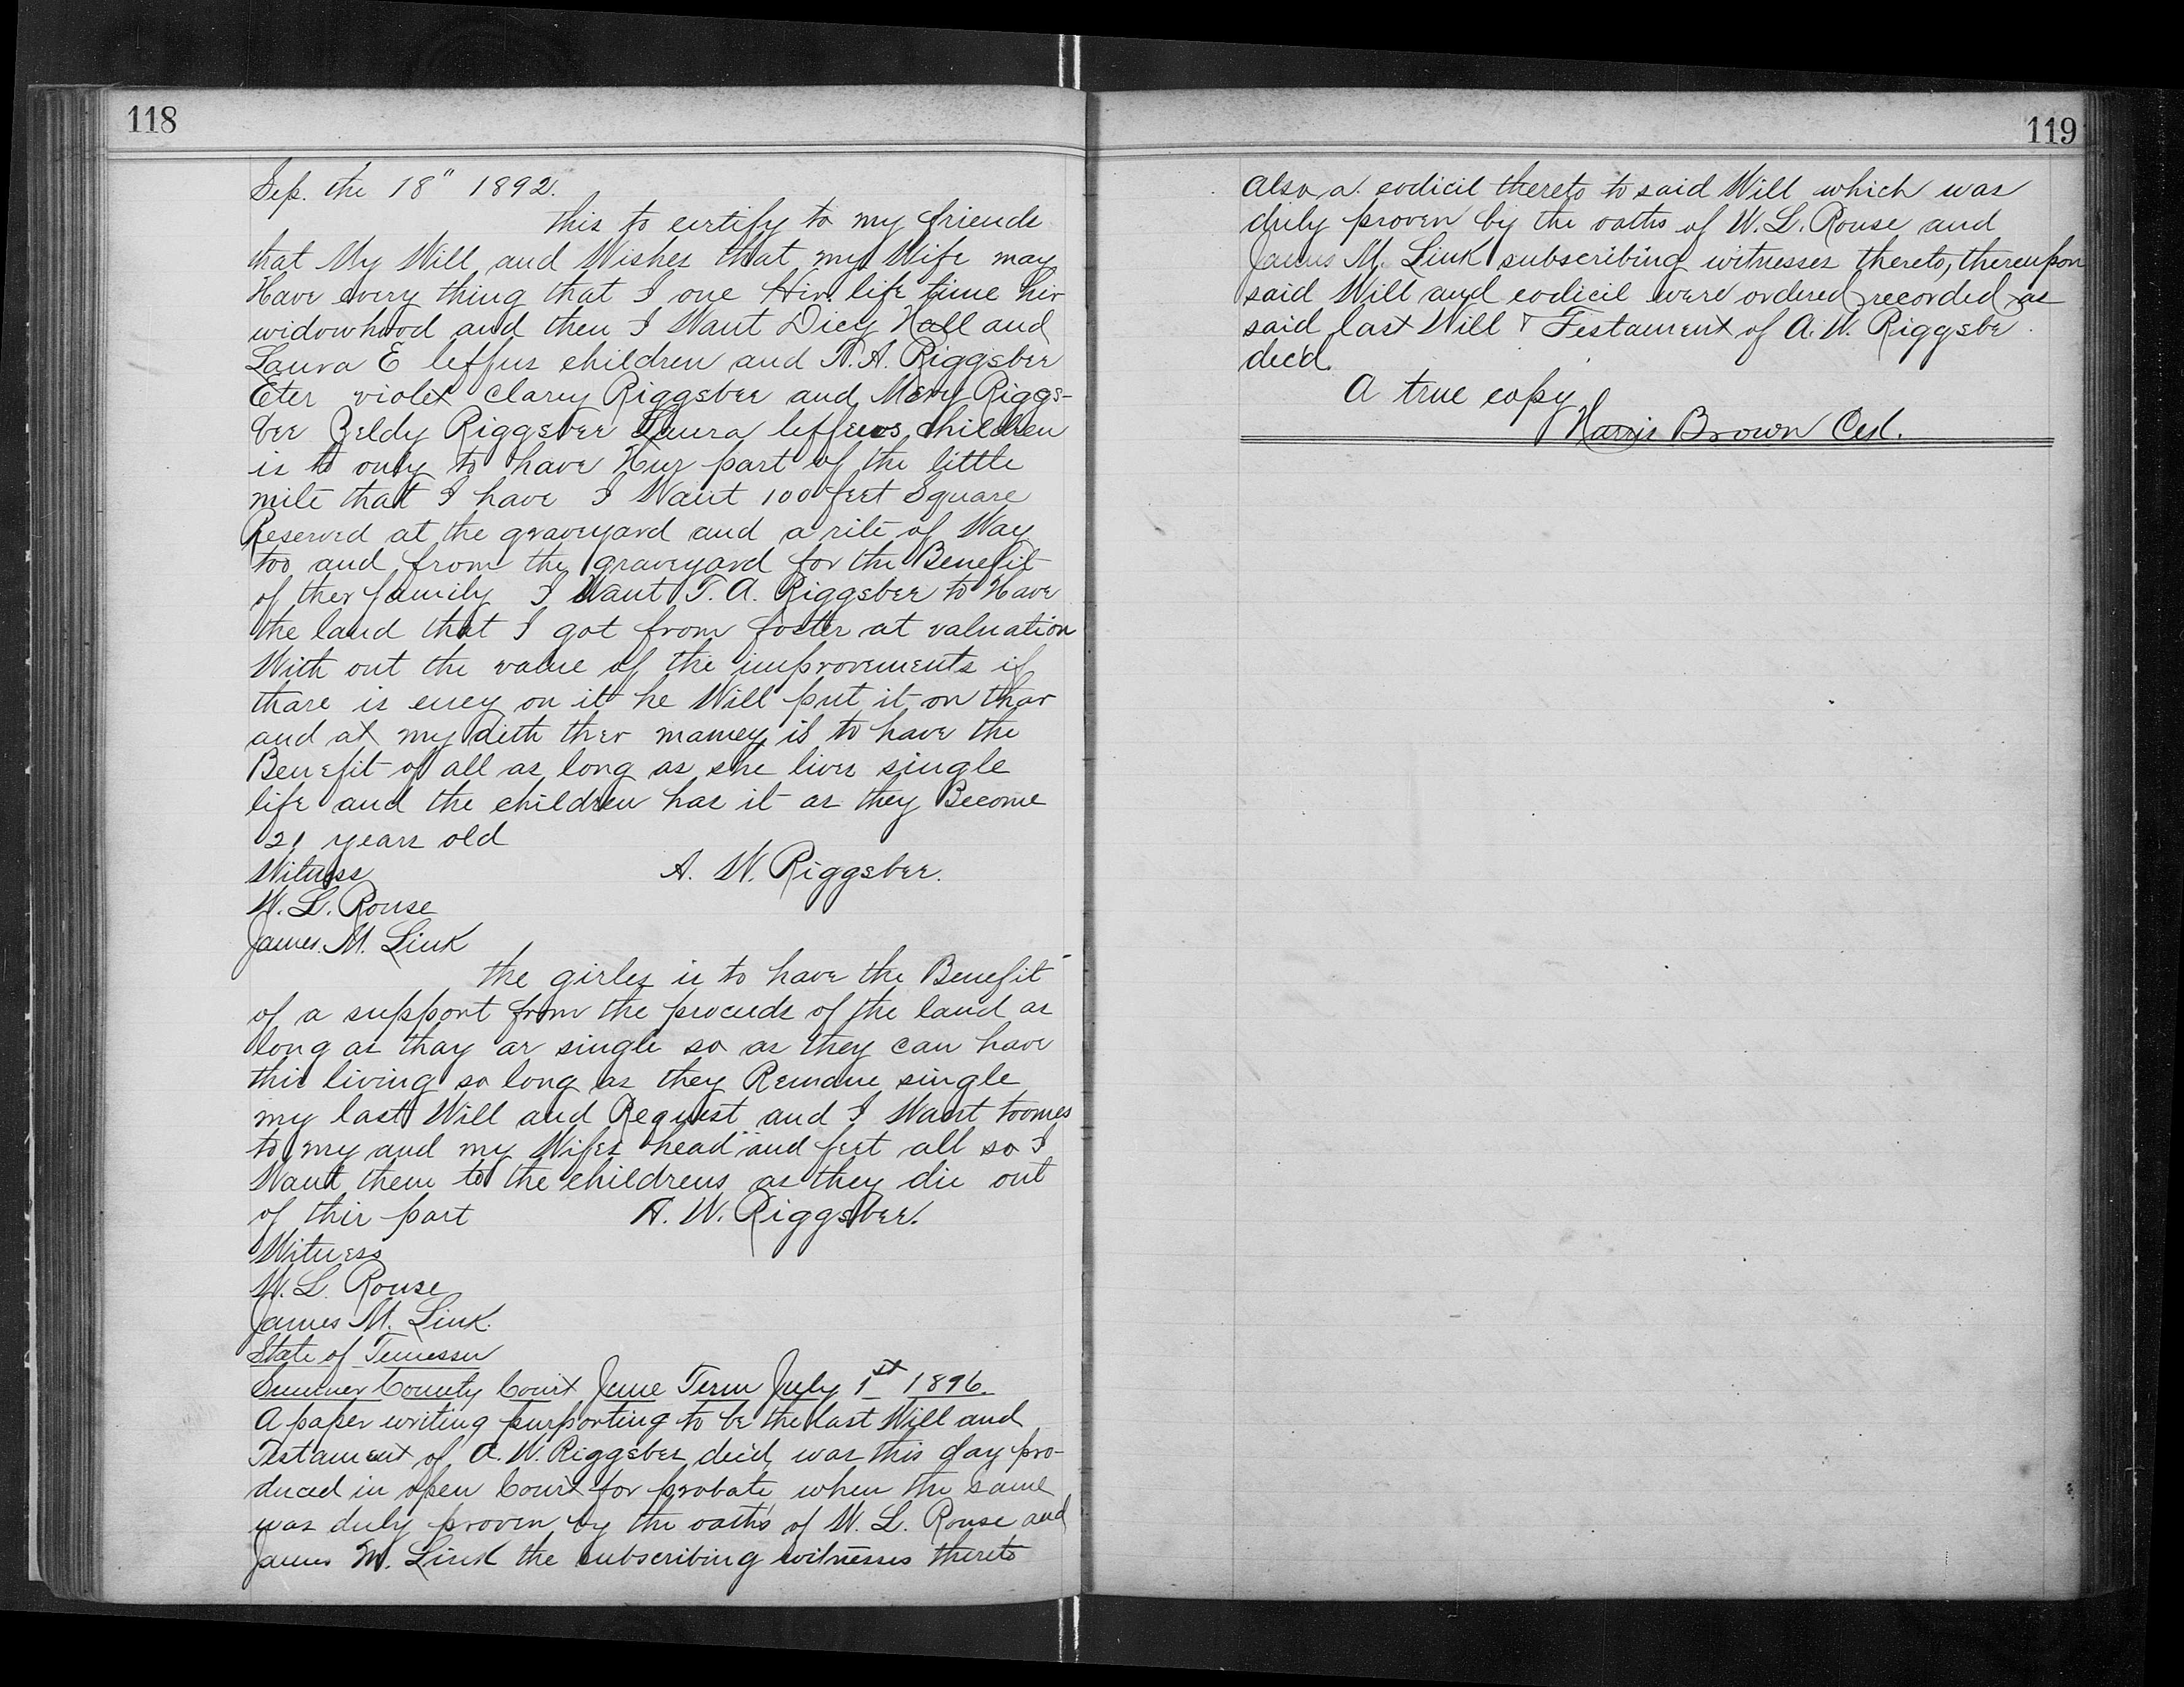 118
Sep. the 18" 1892.
this to certify to my friends
that My Will and Wishes that my Wife may
Have every thing that I one Hir life time hir
widowhood and then I Want Dicy Hall and
Laura E leffus children and T. A. Riggsbee
Eter violet Clary Riggsbee and Mary Riggs-
bee Zeldy Riggsbee Laura leffews children
is to only to have Hur part of the little
mite that I have I Want 100 feet Square
Reserved at the graveyard and a rite of Way
too and from the graveyard for the Benefit
of ther family I Want T. A. Riggsbee to Have
the land that I got from foster at valuation
With out the value of the improvements if
thare is eney on it he Will put it on thar
and at my deth ther mamey is to have the
Benefit of all as long as she lives single
life and the children has it as they Become
21 years old
Witness A. W. Riggsbee.
W. L. Rouse
James. M. Link
the girles is to have the Benefit
of a support from the proceeds of the land as
long as thay ar single so as they can have
thir living so long as they Remane single
my last Will and Request and I Want toomes
to my and my Wifes head and feet all so I
Want them to the childrens as they die out
of thir part A. W. Riggsbee.
Witness
W. L. Rouse
James M. Link.
State of Tennessee
Sumner County Court June Term July 1st 1896.
A paper writing purporting to be the last Will and
Testament of A. W. Riggsbee dec'd, was this day pro-
duced in open Court for probate when the same
was duly proven by the oaths of W. L. Rouse and
James M. Link the subscribing witnesses thereto
119
also a codicil thereto to said Will which was
duly proven by the oaths of W. L. Rouse and
James M. Link subscribing witnesses thereto, thereupon
said Will and codicil were ordered recorded as
said last Will & Testament of A. W. Riggsbe
dec'd.
A true copy
Harris Brown Clk.